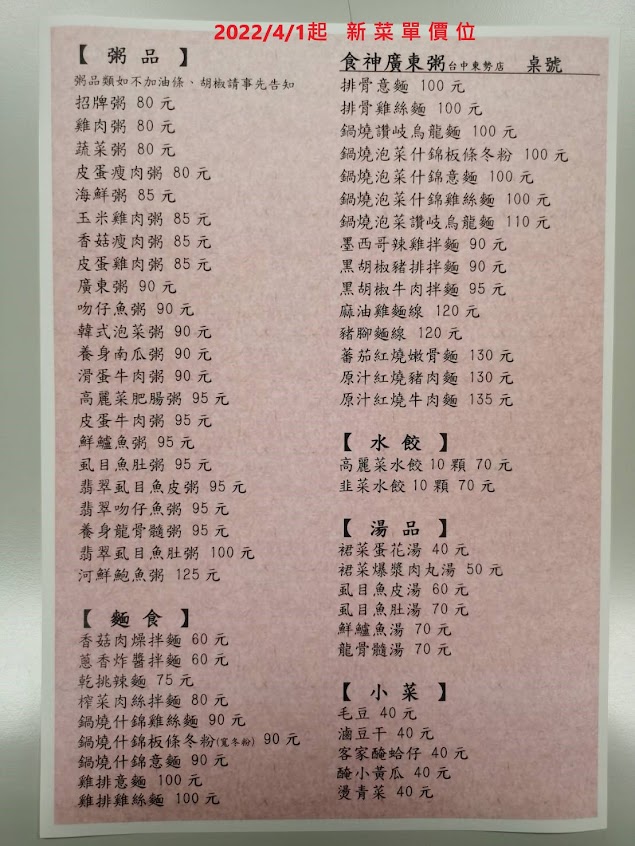 2022/4/1起 新菜單價位
【 粥 品 】
粥品類如不加油條、胡椒請事先告知
招牌粥 80 元
雞肉粥 80 元
蔬菜粥 80 元
皮蛋瘦肉粥 80 元
海鮮粥 85 元
玉米雞肉粥 85 元
香菇瘦肉粥 85 元
皮蛋雞肉粥 85 元
廣東粥 90 元
吻仔魚粥 90 元
韓式泡菜粥 90 元
養身南瓜粥 90 元
滑蛋牛肉粥 90 元
高麗菜肥腸粥 95 元
皮蛋牛肉粥 95 元
鮮鱸魚粥 95 元
虱目魚肚粥 95 元
翡翠虱目魚皮粥 95 元
翡翠吻仔魚粥 95 元
養身龍骨髓粥 95 元
翡翠虱目魚肚粥 100 元
河鮮鮑魚粥 125 元
【 麵 食 】
香菇肉燥拌麵 60 元
蔥香炸醬拌麵 60 元
乾挑辣麵 75 元
榨菜肉絲拌麵 80 元
鍋燒什錦雞絲麵 90 元
鍋燒什錦板條冬粉(寬冬粉) 90 元
鍋燒什錦意麵 90 元
雞排意麵 100 元
雞排雞絲麵 100 元
食神廣東粥台中東勢店 桌號
排骨意麵 100 元
排骨雞絲麵 100 元
鍋燒讚岐烏龍麵 100 元
鍋燒泡菜什錦板條冬粉 100 元
鍋燒泡菜什錦意麵 100 元
鍋燒泡菜什錦雞絲麵 100 元
鍋燒泡菜讚岐烏龍麵 110 元
墨西哥辣雞拌麵 90 元
黑胡椒豬排拌麵 90 元
黑胡椒牛肉拌麵 95 元
麻油雞麵線 120 元
豬腳麵線 120 元
蕃茄紅燒嫩骨麵 130 元
原汁紅燒豬肉麵 130 元
原汁紅燒牛肉麵 135 元
【 水 餃 】
高麗菜水餃10顆 70 元
韭菜水餃10顆 70 元
【 湯 品 】
裙菜蛋花湯 40 元
裙菜爆漿肉丸湯 50 元
虱目魚皮湯 60 元
虱目魚肚湯 70 元
鮮鱸魚湯 70 元
龍骨髓湯 70 元
【 小 菜 】
毛豆 40 元
滷豆干 40 元
客家醃蛤仔 40 元
醃小黃瓜 40 元
燙青菜 40 元